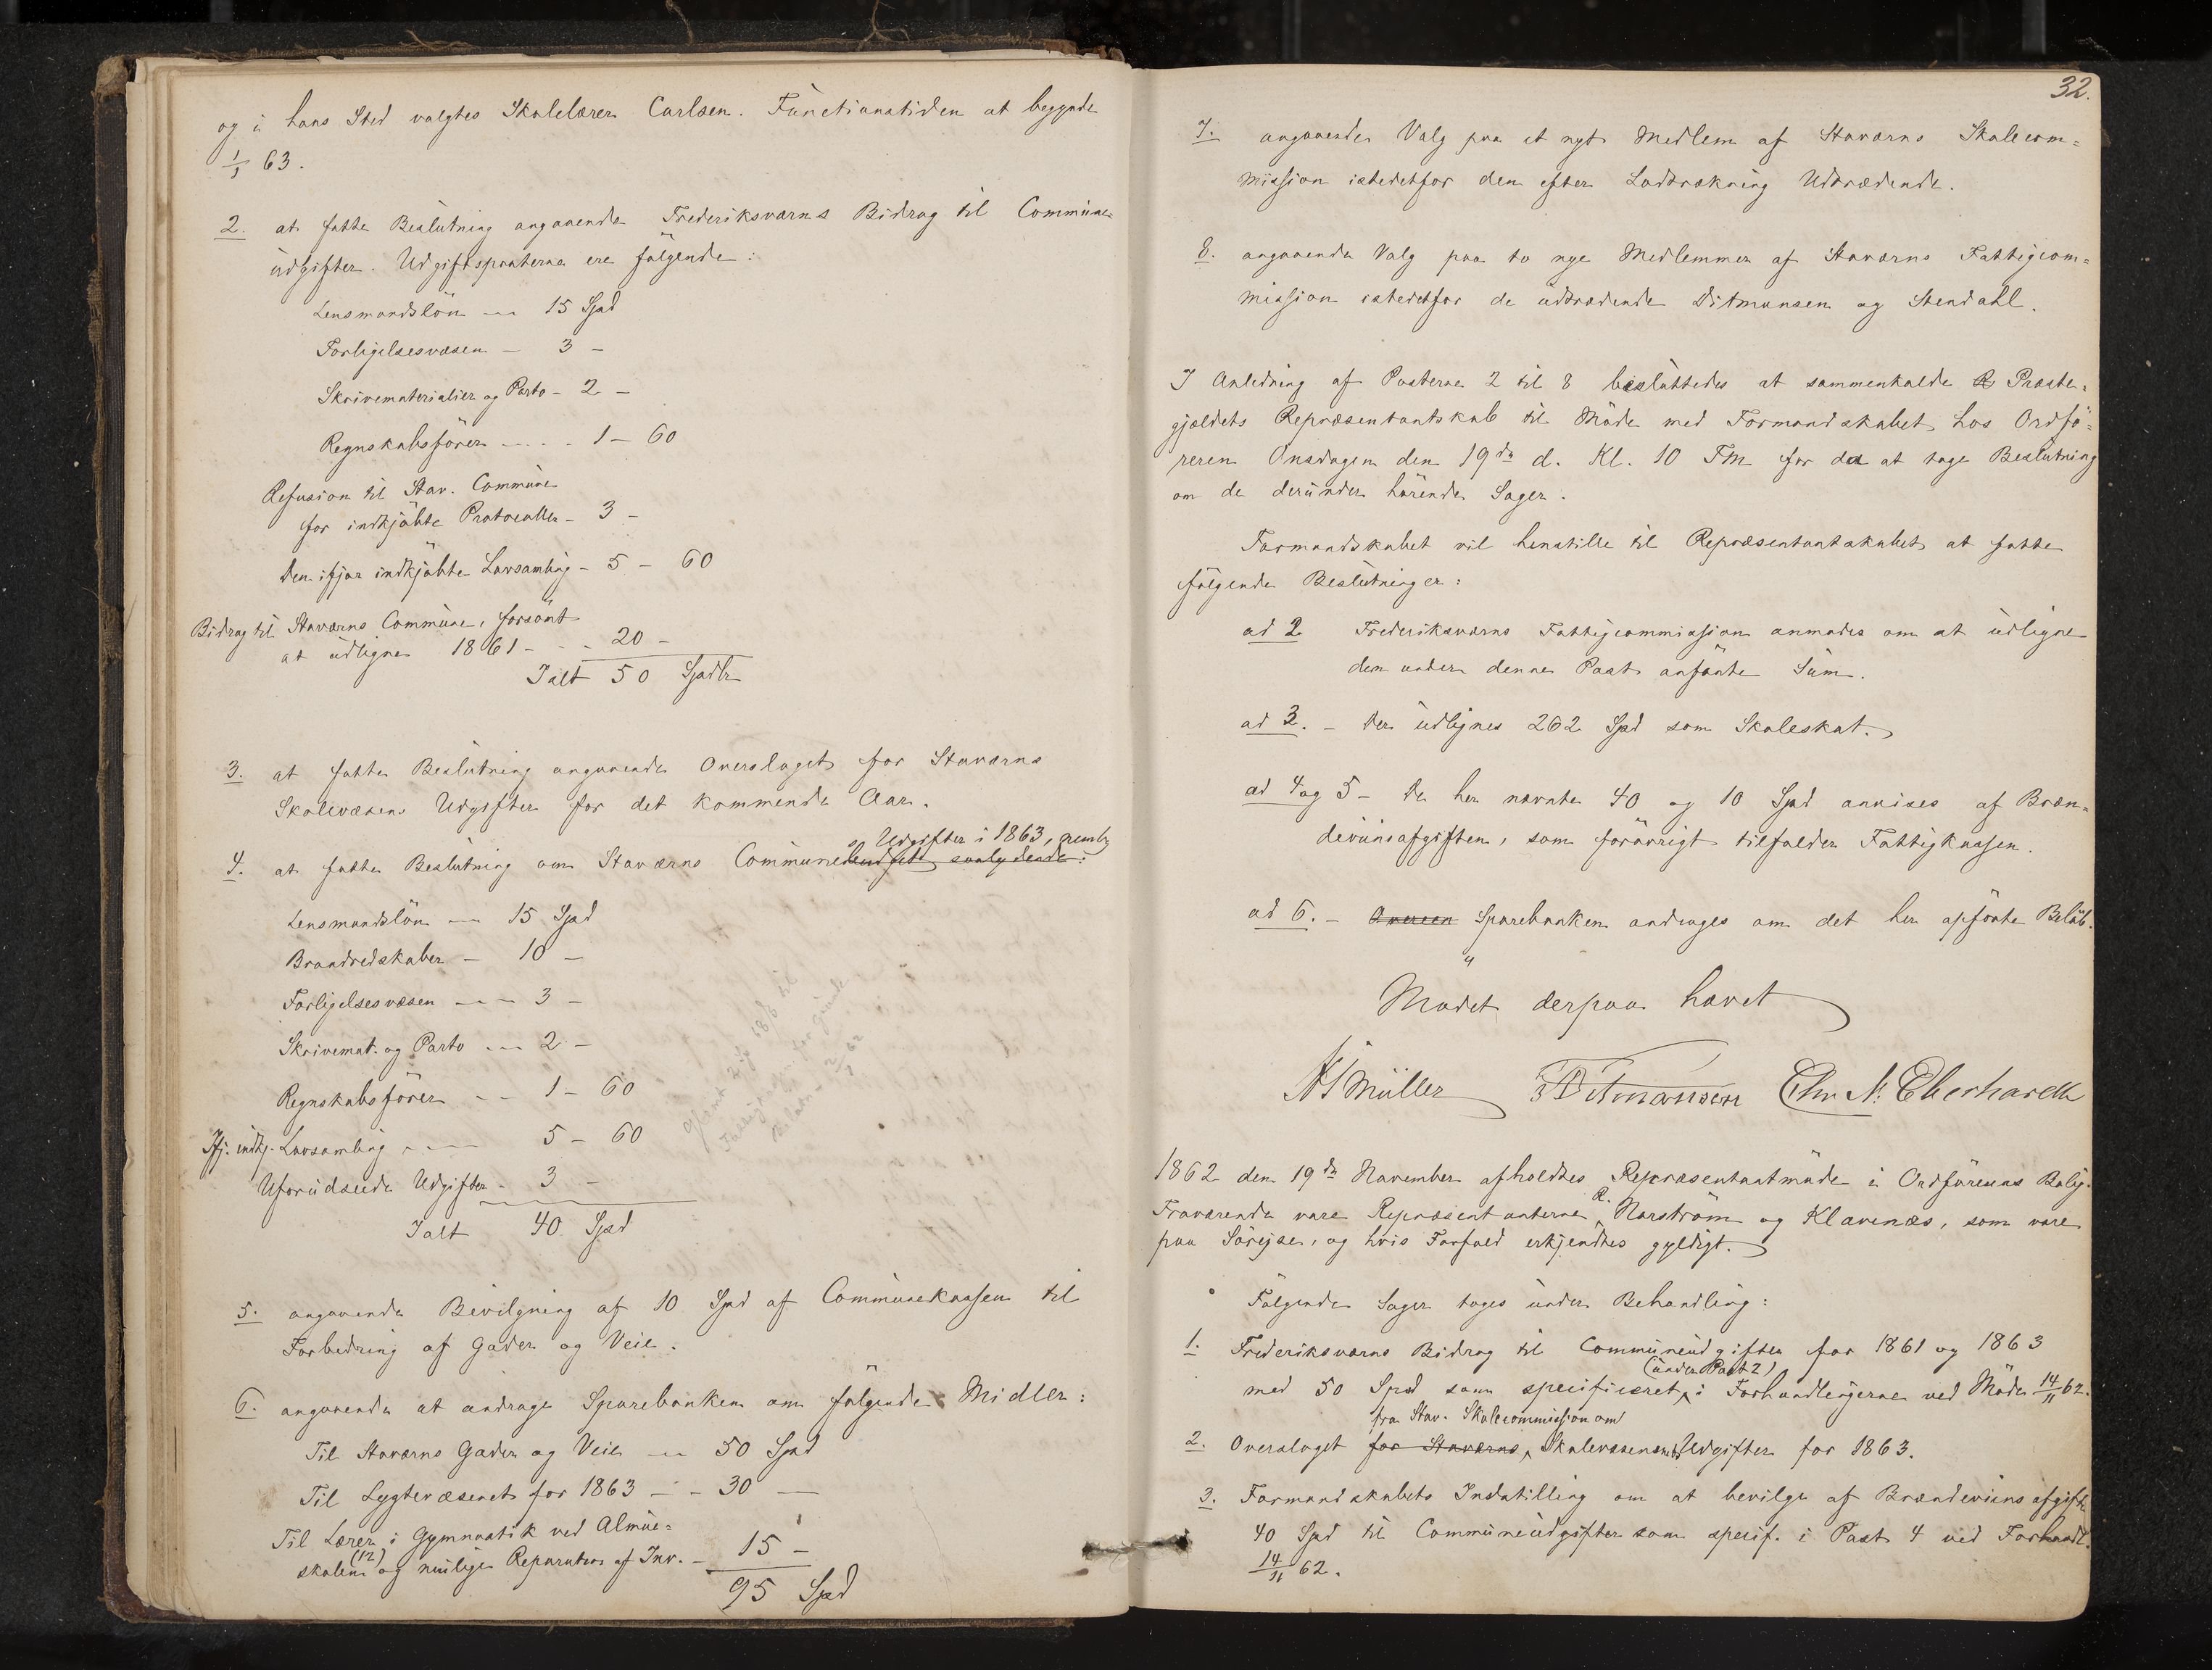 og i hans Sted valgtes Skolelærer Carlsen. Functionstiden at begynde
1/1 63.
2. at fatte Beslutning angaaende Frederiksværns Bidrag til Commune-
udgifter. Udgiftsposterne ere følgende:
Lensmandslön — 15 Spd
Forligelsesvæsen — 3 —
Skrivematerialier og Porto — 2 —
Regnskabsförer - - - - 1 — 60
Refusion til Stav. Commune
for indkjöbte Protocoller — 3 —
Den ifjor indkjöbte Lovsamling — 5 — 60
Bidrag til Staværns Commune, forsömt
at udligne 1861 - - - 20 —
Ialt 50 Spdlr
3. at fatte Beslutning angaaende Overslaget for Staværns
Skolevæsens Udgifter for det kommende Aar.
s Udgifter i 1863, nemlig
4. at fatte Beslutning om Staværns Commune
Lensmandslön — 15 Spd
Brandredskaber — 10 —
Forligelsesvæsen — 3 —
Skrivemat. og Porto — 2 —
Regnskabsförer - - 1 — 60
Ifj. indkj. Lovsamling — 5 — 60
Uforudseede Udgifter — 3 —
Ialt 40 Spd
5. angaaende Bevilgning af 10 Spd af Communekassen til
Forbedring af Gader og Veie.
6. angaaende at andrage Sparebanken om følgende Midler:
Til Staværns Gader og Veie — 50 Spd
Til Lygtevæsenet for 1863 — - 30 —
Til Lærer i Gymnastik ved Almue-
skolen (12) og mulige Reparation af Inv. — 15 —
95 Spd
32.
7. angaaende Valg paa et nyt Medlem af Staværns Skolecom-
mission istedetfor den efter Lodtrækning Udtrædende.
8. angaaende Valg paa to nye Medlemmer af Staværns Fattigcom-
mission istedetfor de udtrædende Ditmansen og Stendahl.
I Anledning af Posterne 2 til 8 besluttedes at sammenkalde Præste-
gjældets Repræsentantskab til Möde med Formandskabet hos Ordfö-
reren Onsdagen den 19de d. Kl. 10 Fm for da at tage Beslutning
om de derunder hörende Sager.
Formandskabet vil henstille til Repræsentantskabet at fatte
fölgende Beslutninger:
ad 2 Frederiksværns Fattigcommission anmodes om at udligne
den under denne Post anförte Sum.
ad 3. — Der udlignes 262 Spd som Skoleskat.
ad 4 og 5 — De her nævnte 40 og 10 Spd anvises af Bræn-
deviinsafgiften, som forövrigt tilfalder Fattigkassen.
ad 6. — Sparebanken andrages om det her opförte Belöb.
Mødet derpaa hævet
Müller Ditmansen Chr. N. Eberhardt
1862 den 19de November afholdtes Repræsentantmöde i Ordförerens Bolig.
Fraværende vare Repræsentanterne R. Norström og Klavenæs, som vare
paa Söreise, og hvis Forfald erkjendtes gyldigt.
Fölgende Sager toges under Behandling:
1. Frederiksværns Bidrag til Communeudgifter for 1861 og 1863
(under Post 2)
med 50 Spd som specificeret i Forhandlingerne ved Möde 14/11 62.
fra Stav. Skolecommission om
2. Overslaget for Staværns Skolevæsens Udgifter for 1863.
3. Formandskabets Indstilling om at bevilge af Brændeviinsafgift
40 Spd til Communeudgifter som specif. i Post 4 ved Forhandl.
14/11 62.